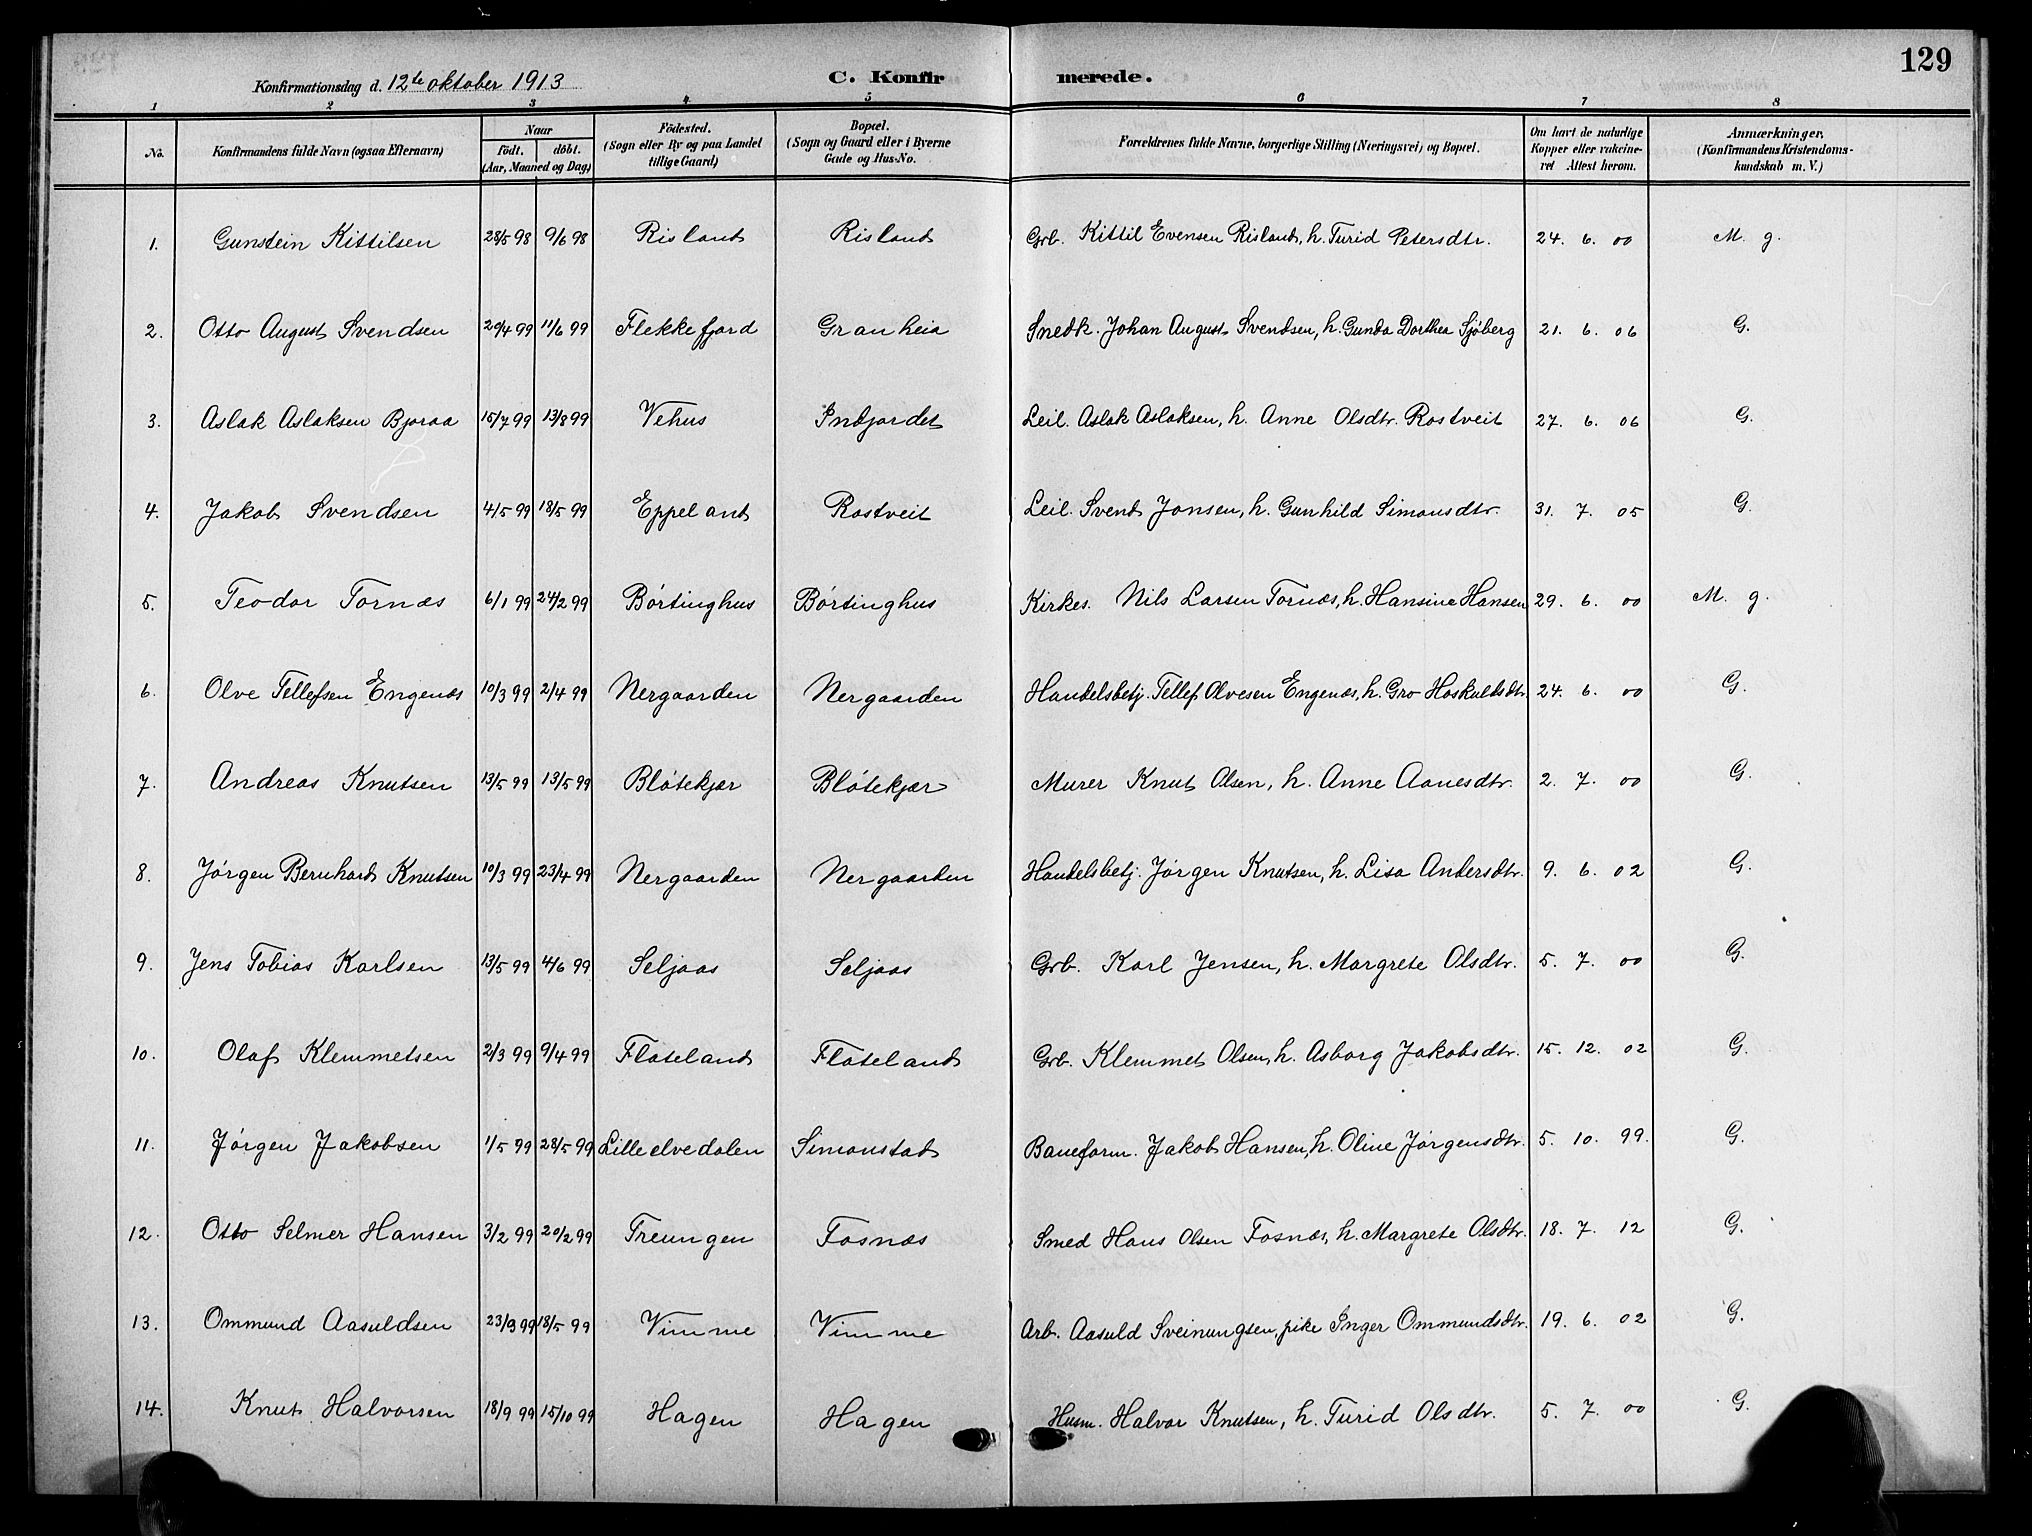 129
Konfirmationsdag d. 12te oktober 1913 C. Konfirmerede.
1 2 3 4 5 6 7 8
No. Konfirmandens fulde Navn (ogsaa Efternavn) Naar födt. döbt. (Aar, Maaned og Dag) Födested. (Sogn eller By og paa Landet tillige Gaard) Bopæl. (Sogn og Gaard eller i Byerne Gade og Hus-No. Forældrenes fulde Navne, borgerlige Stilling (Næringsvei) og Bopæl. Om havt de naturlige Kopper eller vakcineret Attest herom. Anmærkninger. (Konfirmandens Kristendomskundskab m. V.)
1. Gunstein Kittilsen 28/5 98 9/6 98 Risland Risland Grb. Kittil Evensen Risland, h. Turid Petersdtr. 24. 6. 00 M. g.
2. Otto August Svendsen 20/4 99 11/6 99 Flekkefjord Granheia Snedk. Johan August Svendsen, h. Gunda Dorthea Sjøberg 21. 6. 06 G.
3. Aslak Aslaksen Bjoraa 15/7 99 13/8 99 Vehus Indjordet Leil. Aslak Aslaksen, h. Anne Olsdtr. Rostveit 27. 6. 06 G.
4. Jakob Svendsen 4/5 99 18/5 99 Eppeland Rostveit Leil. Svend Jonsen, h. Gunhild Simonsdtr. 31. 7. 05 G.
5. Teodor Tornæs 6/1 99 24/2 99 Børtinghus Børtinghus Kirkes. Nils Larsen Tornæs, h. Hansine Hansen 29. 6. 00 M. g.
6. Olve Tellefsen Engenæs 10/3 99 2/4 99 Nergaarden Nergaarden Handelsbetj. Tellef Olvesen Engenæs, h. Gro Hoskuldsdtr. 24. 6. 00 G.
7. Andreas Knutsen 13/5 99 13/5 99 Bløtekjær Bløtekjær Murer Knut Olsen, h. Anne Aanesdtr. 2. 7. 00 G.
8. Jørgen Bernhard Knutsen 10/3 99 23/4 99 Nergaarden Nergaarden Handelsbetj. Jørgen Knutsen, h. Lisa Andersdtr. 9. 6. 02 G.
9. Jens Tobias Karlsen 13/5 99 4/6 99 Seljaas Seljaas Grb. Karl Jensen, h. Margrete Olsdtr. 5. 7. 00 G.
10. Olaf Klemmetsen 2/3 99 9/4 99 Flateland Flateland Grb. Klemmet Olsen, h. Asborg Jakobsdtr. 15. 12. 02 G.
11. Jørgen Jakobsen 1/5 99 28/5 99 Lilleelvedalen Simonstad Baneform. Jakob Hansen, h. Oline Jørgensdtr. 5. 10. 99. G.
12. Otto Selmer Hansen 3/2 99 20/2 99 Treungen Fosnæs Smed Hans Olsen Fosnæs, h. Margrete Olsdtr. 18. 7. 12 G.
13. Ommund Aasuldsen 23/3 99 18/5 99 Vimme Vimme Arb. Aasuld Sveinungsen, pike Inger Ommundsdtr. 19. 6. 02 G.
14. Knut Halvorsen 18/9 99 15/10 99 Hagen Hagen Husm. Halvor Knutsen, h. Turid Olsdtr. 5. 7. 00 G.